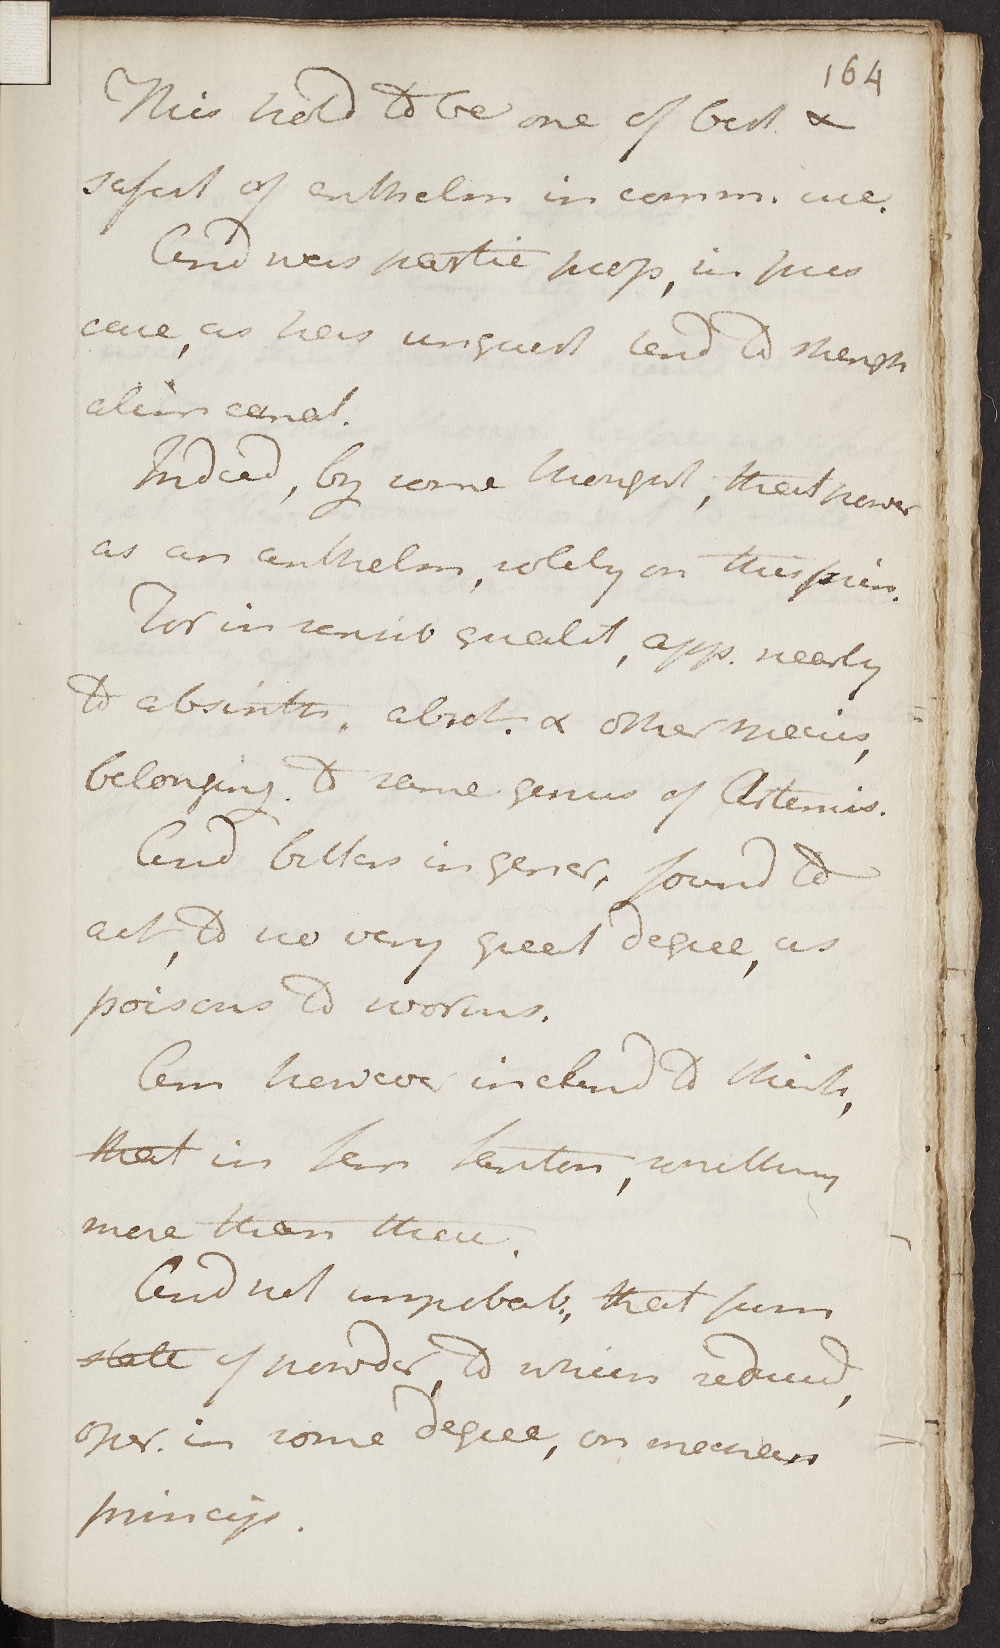 164
This held to be one of best &
safest of anthelm in comm. use.
And was partic prop, in
case, as has unquest tend to strength
alim canal.
Indeed, by some thought, that power
as an anthelm, solely on this prin.
For in sensib qualit, app. nearly
to absinth. abrot. & other species,
belonging to same genus of Artemis.
And bitters in gener, found to
act, to no very great degree, as
poisons to worms.
Am however inclend to think,
that in sem santon, something
more than these.
And not improbab., that form
state of powder, to which reduced,
oper. in some degree, on mechan
princip.